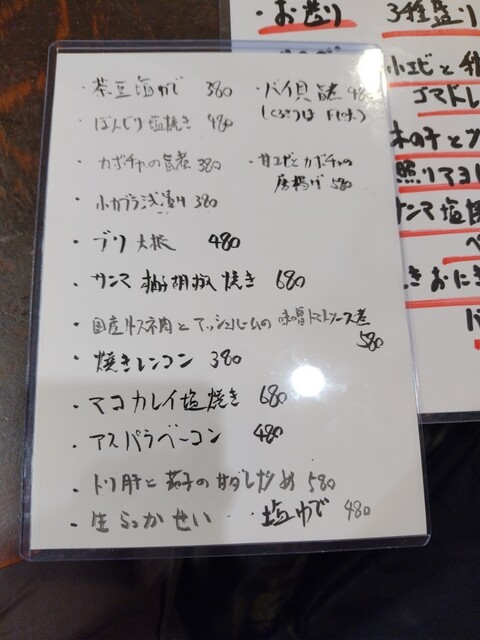 ・茶豆塩ゆで 380
・バイ貝旨煮 480
・ぼんじり塩焼き 480
・カボチャの旨煮 380
・甘エビとカボチャの
唐揚げ 580
・小カブラ浅漬け 380
・ブリ大根 480
・サンマ柚胡椒焼き 680
・国産牛スネ肉とマッシュルームの味噌トマトソース煮
580
・焼きレンコン 380
・マコカレイ塩焼き 680
・アスパラベーコン 480
・トリ肝と茄子の甘ダレ炒め 580
・生らっかせい ・塩ゆで 480
・お造り 3種盛り
小エビと
ゴマドレ
木の子と
照りマヨ
サンマ塩